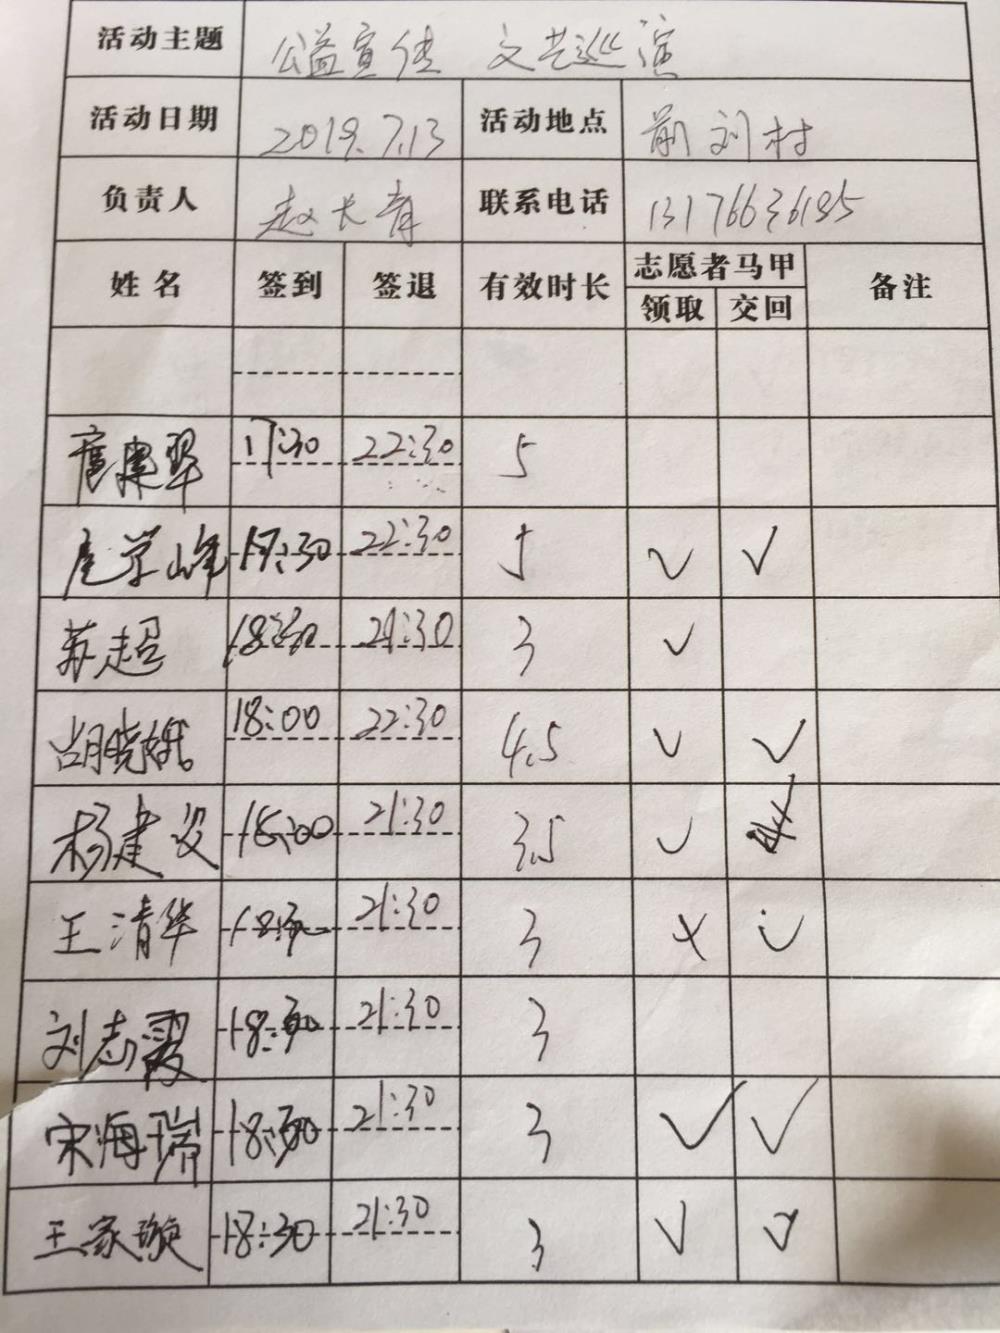 活动主题 公益宣传 文艺巡演
活动日期 2019.7.13 活动地点 前刘村
负责人 赵长青 联系电话 13176636195
姓名 签到 签退 有效时长 志愿者马甲 备注
领取 交回
17:30 22:30 5
学峰 17:30 22:30 5 √ √
苏超 18:30 21:30 3 √
胡晓娥 18:00 22:30 4.5 √ √
杨建设 18:00 21:30 3.5 √
王清华 18:30 21:30 3 × √
刘志霞 18:30 21:30 3
宋海瑞 18:30 21:30 3 √ √
王家璇 18:30 21:30 3 √ √